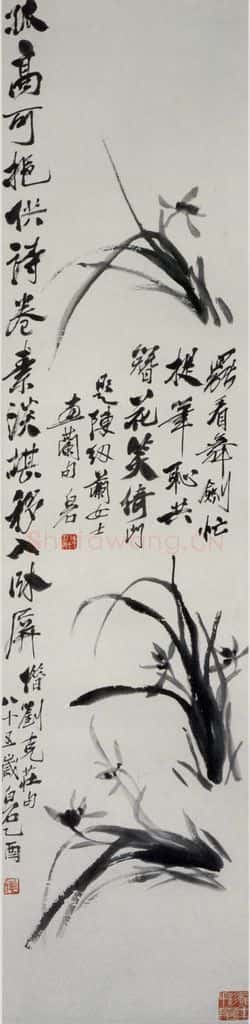 孤高可挹供詩卷素淡堪移入卧屏
借劉克莊句
八十五歲白石乙酉
罷看舞劍忙
提筆恥共
簪花笑倚門
題陳紉蘭女士
畫蘭句白石
Shufawang.CN